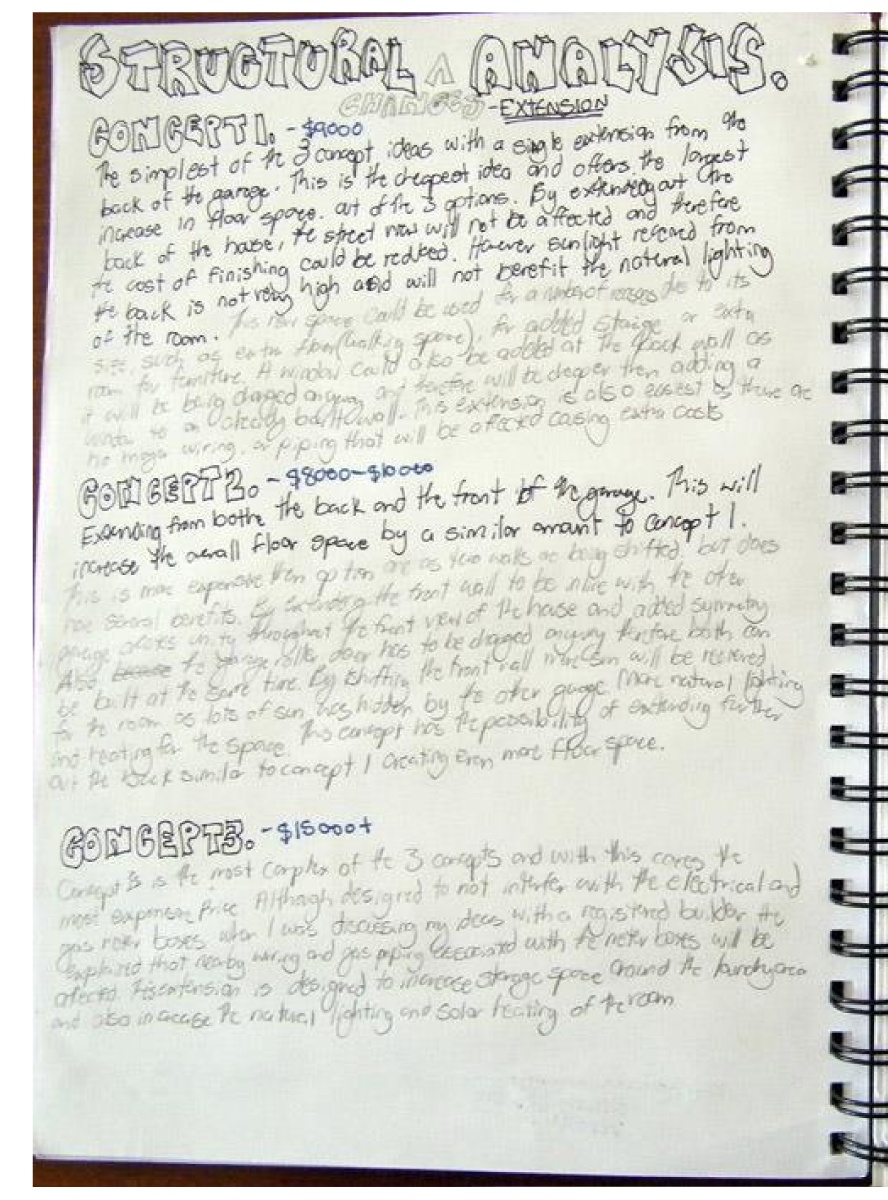 STRUCTURAL ^ ANALYSIS.
CHANGES - EXTENSION
CONCEPT 1. - $9000
The simplest of the 3 concept ideas with a single extension from the
back of the garage. This is the cheapest idea and offers the largest
increase in floor space. out of the 3 options. By extending out the
back of the house, the street view will not be affected and therefore
the cost of finishing could be reduced. However sunlight received from
the back is not very high and will not benefit the natural lighting
of the room. This new space could be used for a number of reasons due to its
size, such as extra floor (walking space), for added storage or extra
room for furniture. A window could also be added at the back wall as
it will be being changed anyway and therefore will be cheaper then adding a
window to an already built wall. This extension is also easiest as there are
no major wiring, or piping that will be affected causing extra costs
CONCEPT 2. - $8000-$10000
Extending from bothe the back and the front of the garage. This will
increase the overall floor space by a similar amount to concept 1.
This is more expensive then option one as two walls are being shifted, but does
have several benefits. By extending the front wall to be inline with the other
garage creates unity throughout the front view of the house and added symmetry
Also the garage roller door has to be changed anyway therefore both can
be built at the same time. By shifting the front wall more sun will be received
for the room as lots of sun was hidden by the other garage. More natural lighting
and heating for the space. This concept has the possibility of extending further
out the back similar to concept 1 creating even more floor space.
CONCEPT 3. - $15000+
Concept 3 is the most complex of the 3 concepts and with this comes the
most expensive price. Although designed to not interfer with the electrical and
gas meter boxes when I was discussing my ideas with a registered builder he
explained that nearby wiring and gas piping associated with the meter boxes will be
affected. This extension is designed to increase storage space around the laundry area
and also increase the natural lighting and solar heating of the room